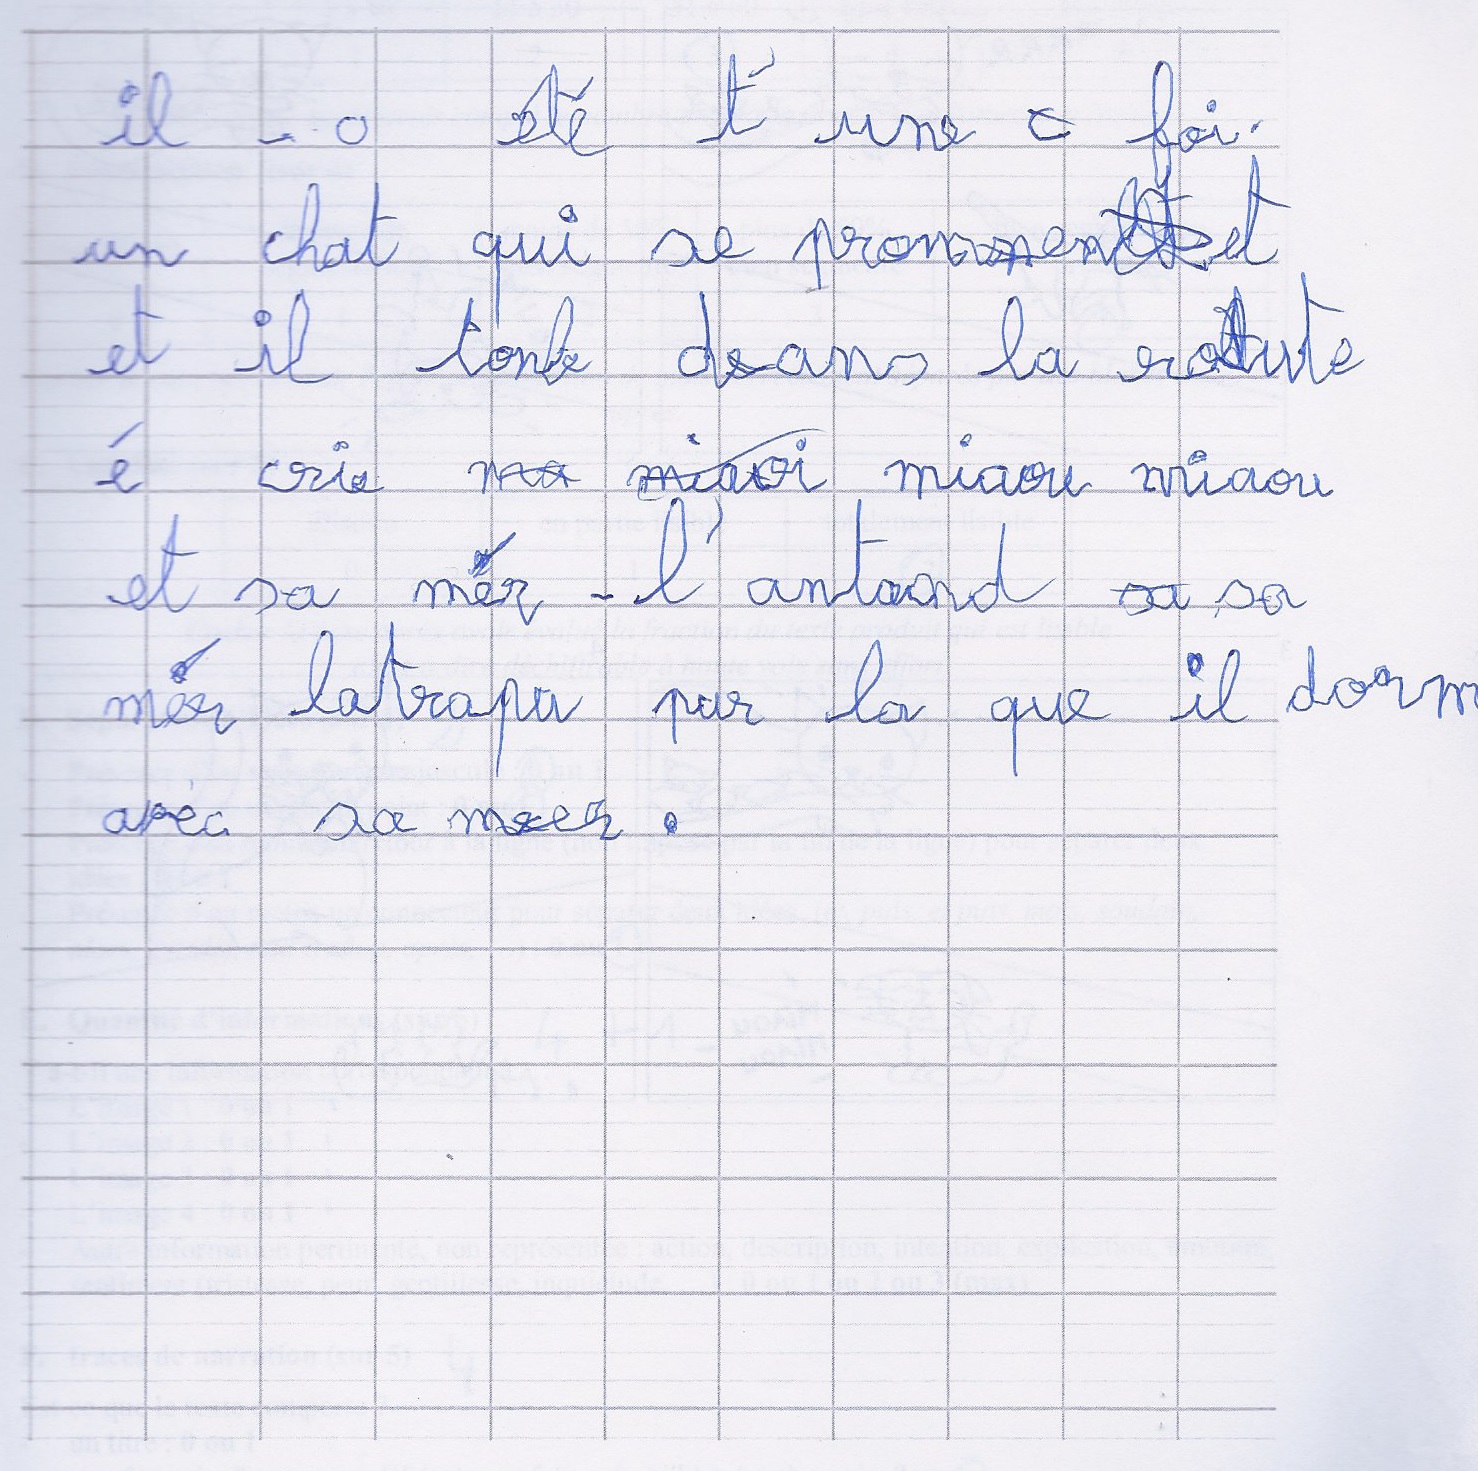 il - o été t' une c foi.
un chat qui se promenet
et il tonbe dans la route
é crie ma miaoi miaou miaou
et sa mér - l' antand sa sa
mér latrapu par la que il dorm
avéc sa meer.